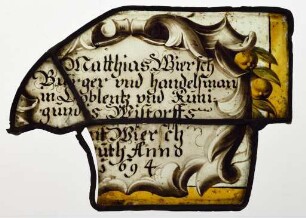 Matthias Wiersch
Burger vnd handelsman
in Coblentz vnd Kuni-
gunda Wistorffs
Wirsch
Anno
1694